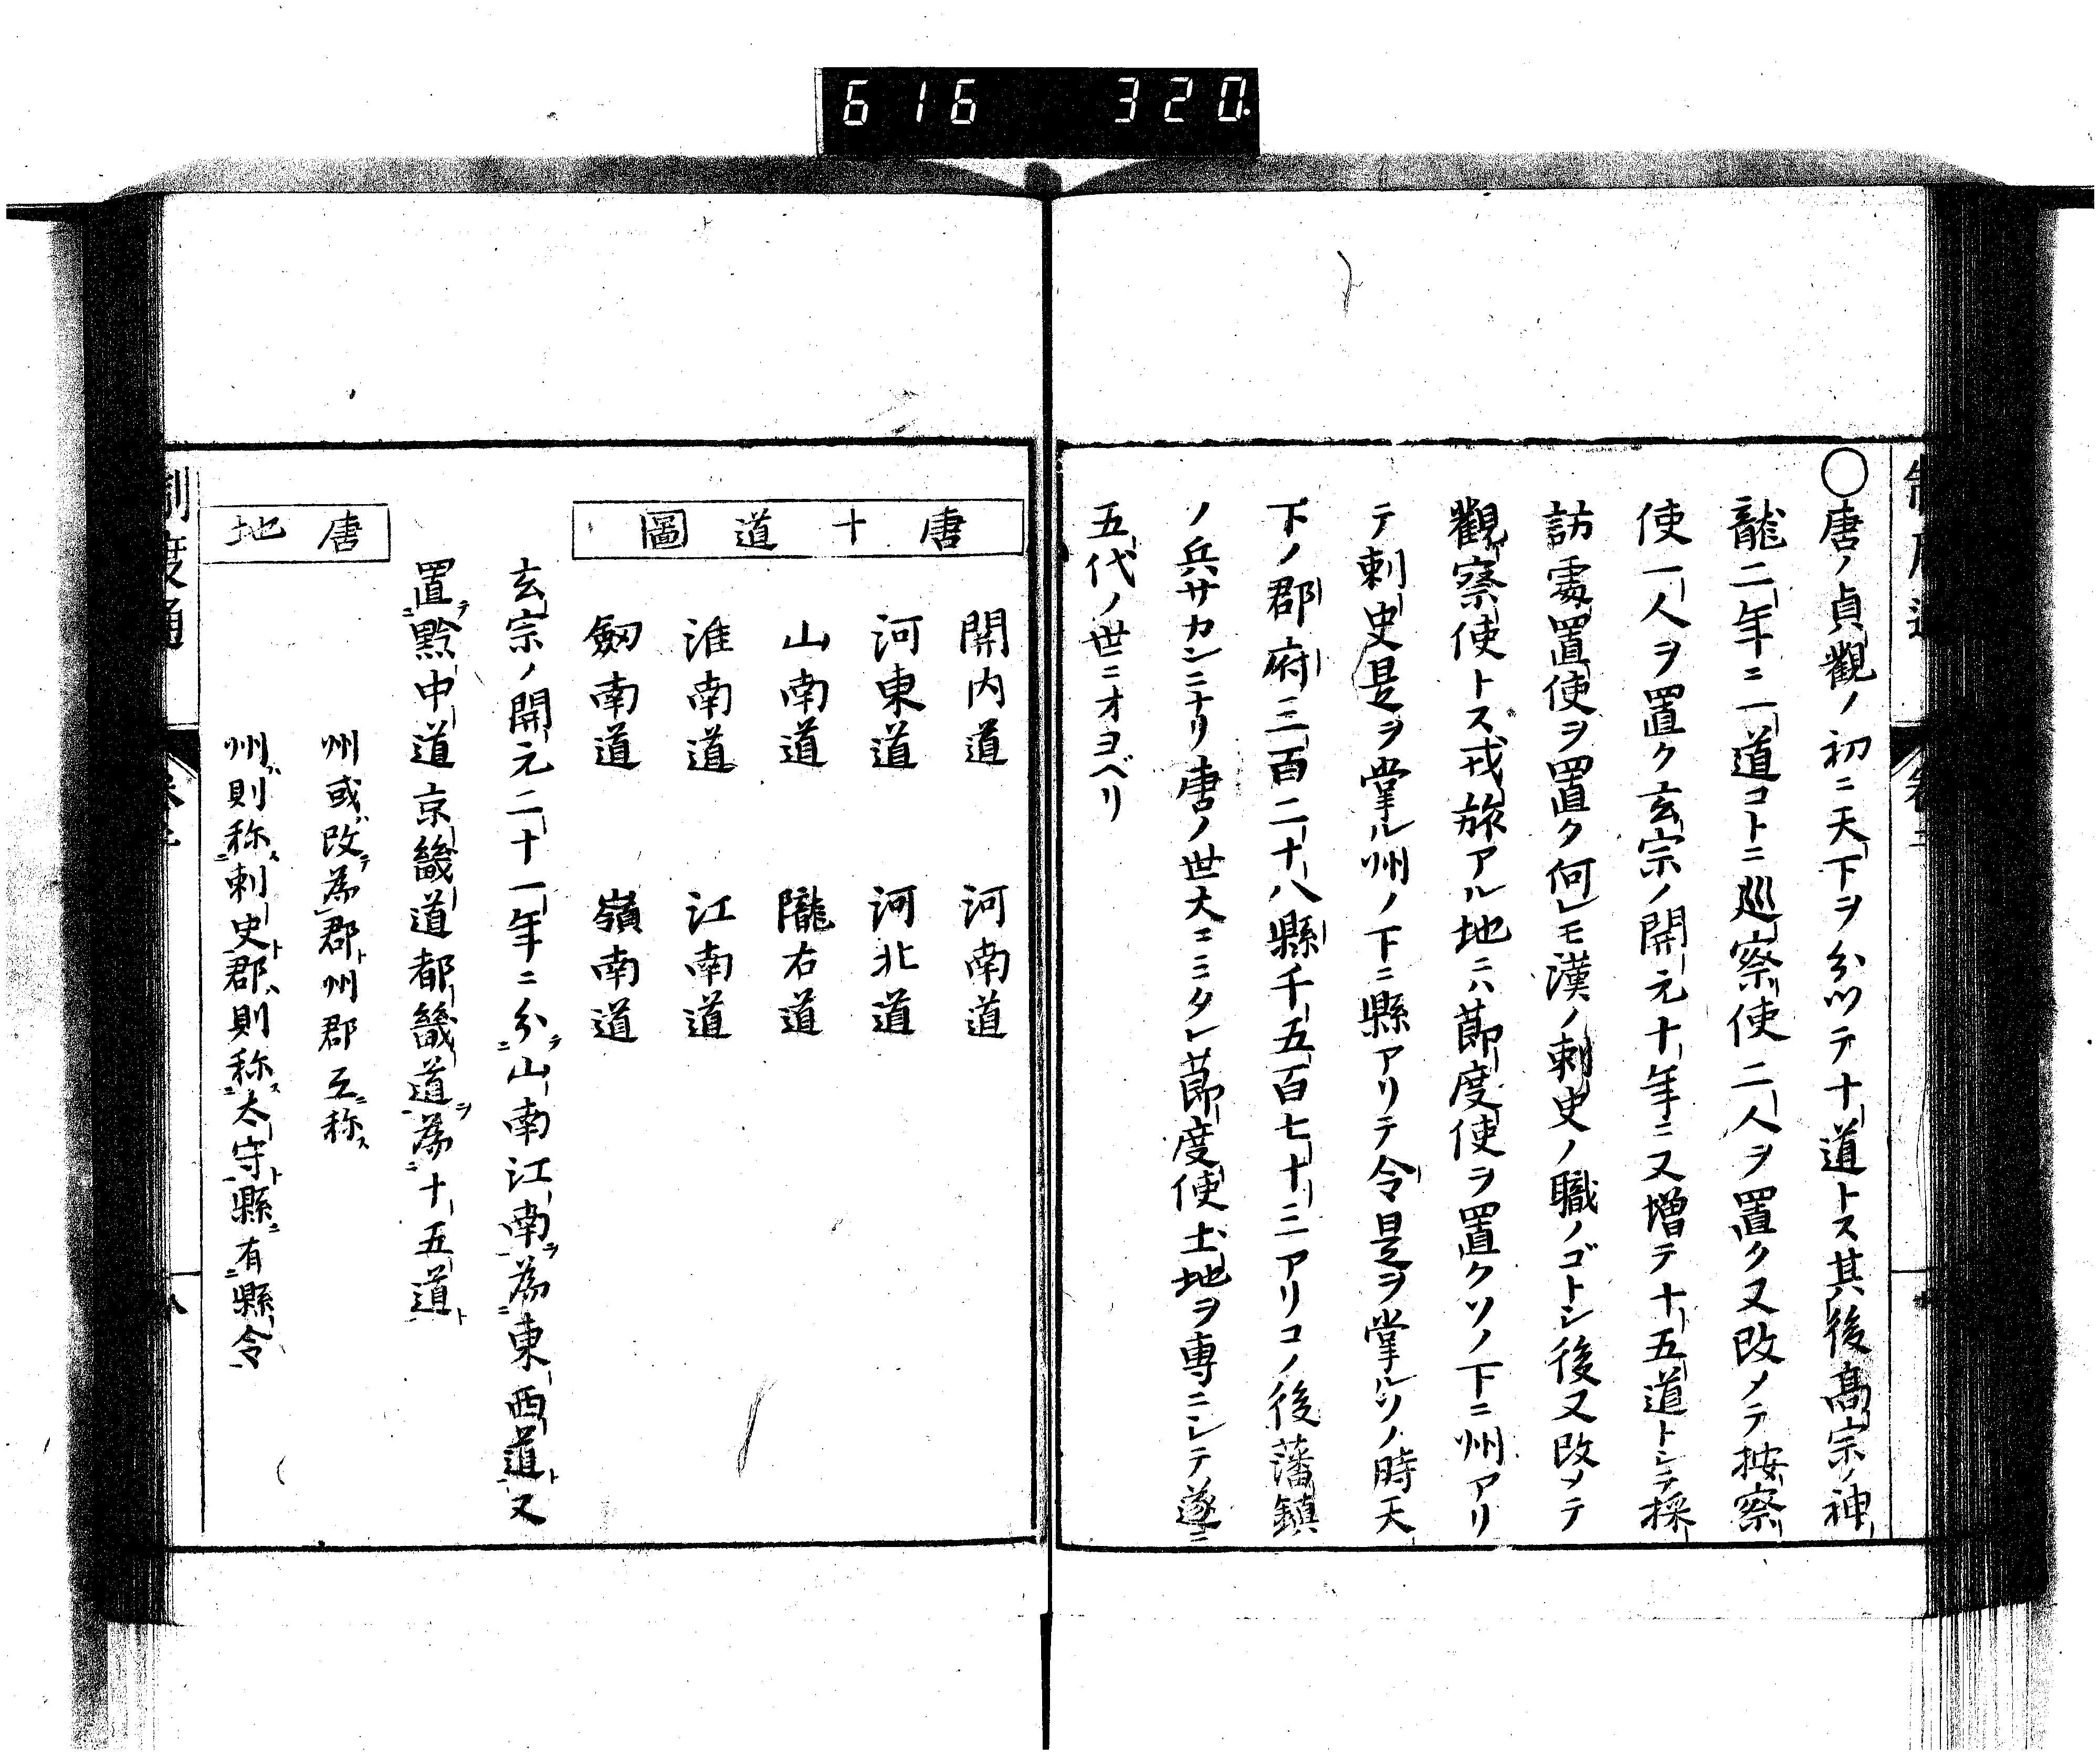 616 320
○唐ノ貞觀ノ初ニ天下ヲ分ツテ十道トス其後髙宗ノ神
龍二年ニ二道コトニ巡察使二人ヲ置ク又改メテ按察
使一人ヲ置ク玄宗ノ開元十年ニ又増テ十五道トシテ採
訪處置使ヲ置ク何レモ漢ノ刺史ノ職ノゴトシ後又改メテ
觀察使トス戎旅アル地ニハ節度使ヲ置クソノ下ニ州アリ
テ刺史是ヲ掌ル州ノ下ニ縣アリテ令是ヲ掌ルソノ時天
下ノ郡府三百二十八縣千五百七十三アリコノ後藩鎮
ノ兵サカンニナリ唐ノ世大ニミタレ節度使土地ヲ専ニシテ遂ニ
五代ノ世ニオヨベリ
唐十道圖
開内道 河南道
河東道 河北道
山南道 隴右道
淮南道 江南道
劔南道 嶺南道
玄宗ノ開元二十一年ニ分テ山南江南ヲ為東西道ト又
置テ黔中道京畿道都畿道ヲ為十五道ト
唐地
州或ハ改テ為郡ト州郡互ニ称ス
州ハ則称ス刺史ト郡ハ則称ス太守ト縣ニ有縣令
制度通